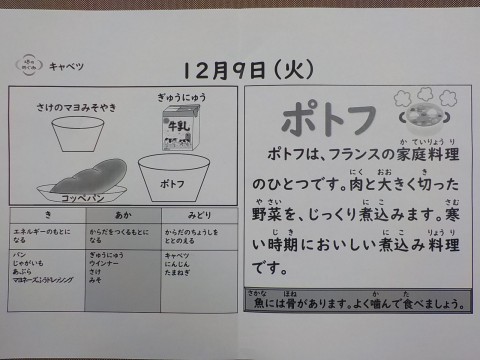 キャベツ
12月9日(火)
さけのマヨみそやき
ぎゅうにゅう
牛乳
コッペパン
ポトフ
き
あか
みどり
エネルギーのもとに
なる
からだをつくるもとに
なる
からだのちょうしを
ととのえる
パン
じゃがいも
あぶら
ぎゅうにゅう
ウインナー
さけ
みそ
キャベツ
にんじん
たまねぎ
ポトフ
か ていりょう り
ポトフは、フランスの家庭料理
にく おお き
のひとつです。肉と大きく切った
や さい に こ さむ
野菜を、じっくり煮込みます。寒
じ き に こ りょう り
い時期においしい煮込み料理
です。
さかな ほね か た
魚には骨があります。よく噛んで食べましょう。